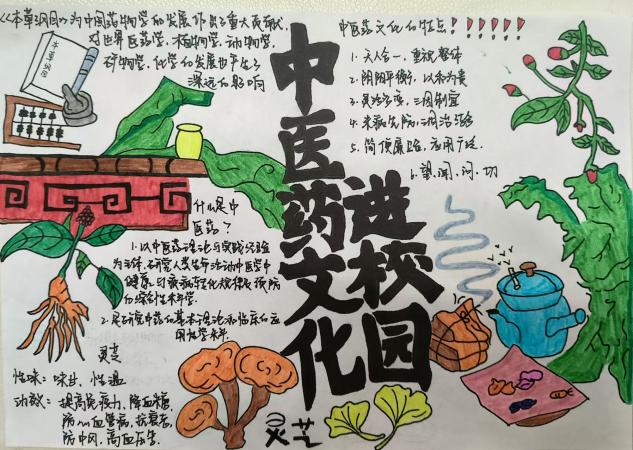 《本草纲目》为中国药物学的发展作出了重大贡献
对世界医药学、植物学、动物学、
矿物学、化学的发展也产生了
深远的影响
本草纲目
中医药文化进校园
中医药文化的特点！！！！！！
1. 天人合一，重视整体
2. 阴阳平衡，以和为贵
3. 灵活多变，三因制宜
4. 未病先防，调治
5. 简便廉验，应用广泛
6. 望、闻、问、切
什么是中
医药？
1. 以中医药理论与实践经验
为主体，研究人类生命活动中医学中
健康与疾病转化规律及预防
的综合性科学
2. 是研究中药的基本理论和临床的应
用性学科
灵芝
性味：味甘，性温
功效：提高免疫力，降血糖，
防心血管病，抗衰老，
防中风，高血压等
灵芝